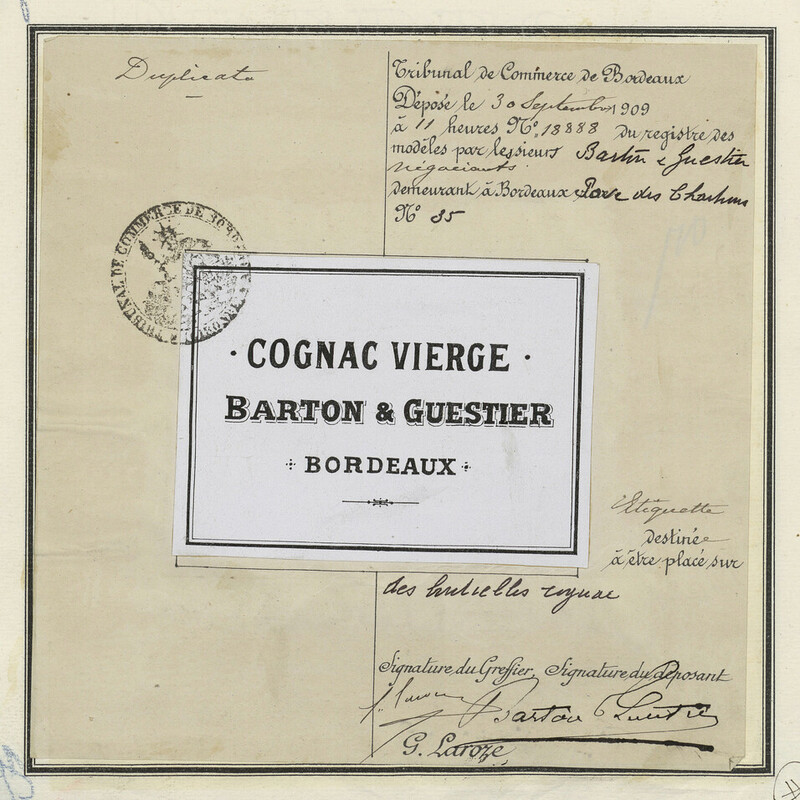 Duplicata
Tribunal de Commerce de Bordeaux
Déposé le 30 Septembre 1909
à 11 heures N° 18888 du registre des
modèles par les sieurs Barton & Guestier
négociants
demeurant à Bordeaux, Pavé des Chartrons
N° 35
TRIBUNAL DE COMMERCE DE BORDEAUX
· COGNAC VIERGE ·
BARTON & GUESTIER
BORDEAUX
Etiquette
destinée
à être placé sur
des bouteilles cognac
Signature du Greffier, Signature du déposant
Barton & Guestier
G. Laroze